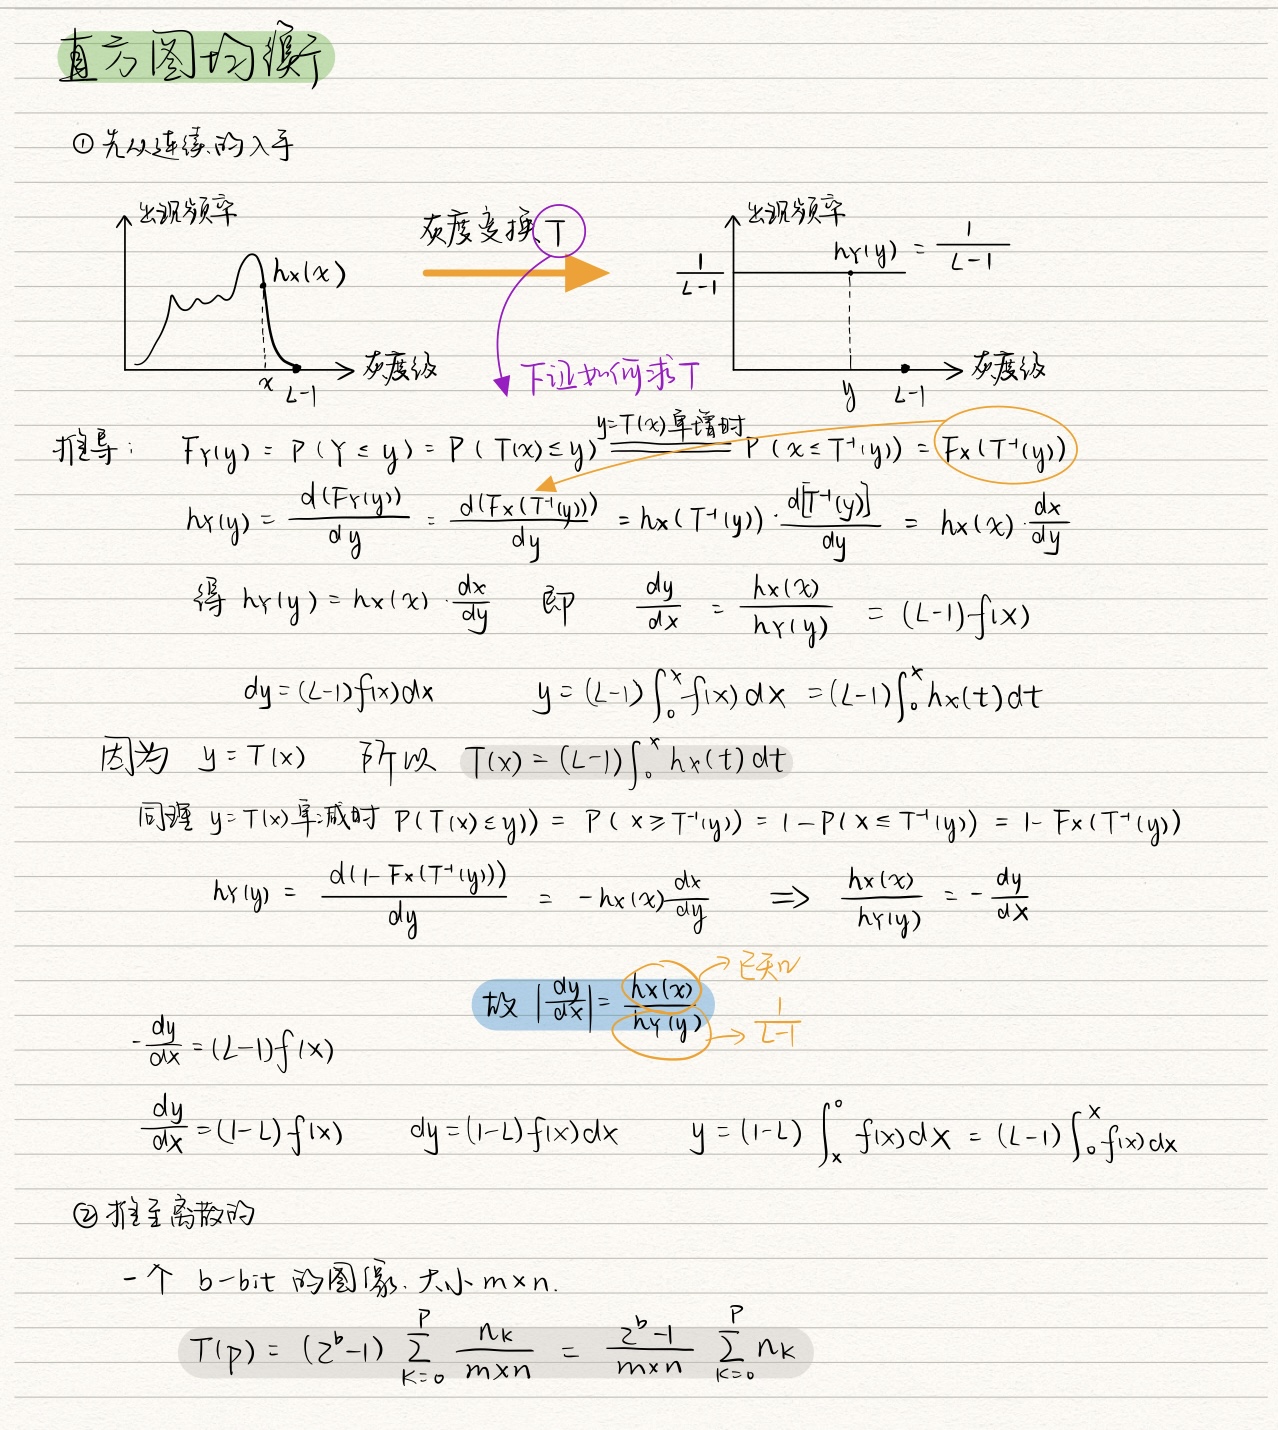 直方图均衡
① 先从连续的入手
出现频率
灰度变换 T
出现频率
hx(x)
1/(L-1)
hY(y) = 1/(L-1)
x
L-1
灰度级
下证如何求T
y
L-1
灰度级
推导: FY(y) = P(Y ≤ y) = P(T(x) ≤ y) y=T(x)单增时 = P(x ≤ T⁻¹(y)) = Fx(T⁻¹(y))
hY(y) = d(FY(y))/dy = d(Fx(T⁻¹(y)))/dy = hx(T⁻¹(y)) · d[T⁻¹(y)]/dy = hx(x) · dx/dy
得 hY(y) = hx(x) · dx/dy 即 dy/dx = hx(x)/hY(y) = (L-1)f(x)
dy = (L-1)f(x)dx y = (L-1)∫₀ˣ f(x)dx = (L-1)∫₀ˣ hx(t)dt
因为 y = T(x) 所以 T(x) = (L-1)∫₀ˣ hx(t)dt
同理 y = T(x)单减时 P(T(x) ≤ y)) = P(x ≥ T⁻¹(y)) = 1 - P(x ≤ T⁻¹(y)) = 1 - Fx(T⁻¹(y))
hY(y) = d(1 - Fx(T⁻¹(y)))/dy = -hx(x) dx/dy ⇒ hx(x)/hY(y) = - dy/dx
故 |dy/dx| = hx(x)/hY(y)
已知
1/(L-1)
- dy/dx = (L-1)f(x)
dy/dx = (1-L)f(x) dy = (1-L)f(x)dx y = (1-L)∫ₓ⁰ f(x)dx = (L-1)∫₀ˣ f(x)dx
② 推至离散的
一个 b-bit 的图像. 大小 m×n.
T(p) = (2ᵇ-1) Σ_{k=0}^{P} nk/(m×n) = (2ᵇ-1)/(m×n) Σ_{k=0}^{P} nk